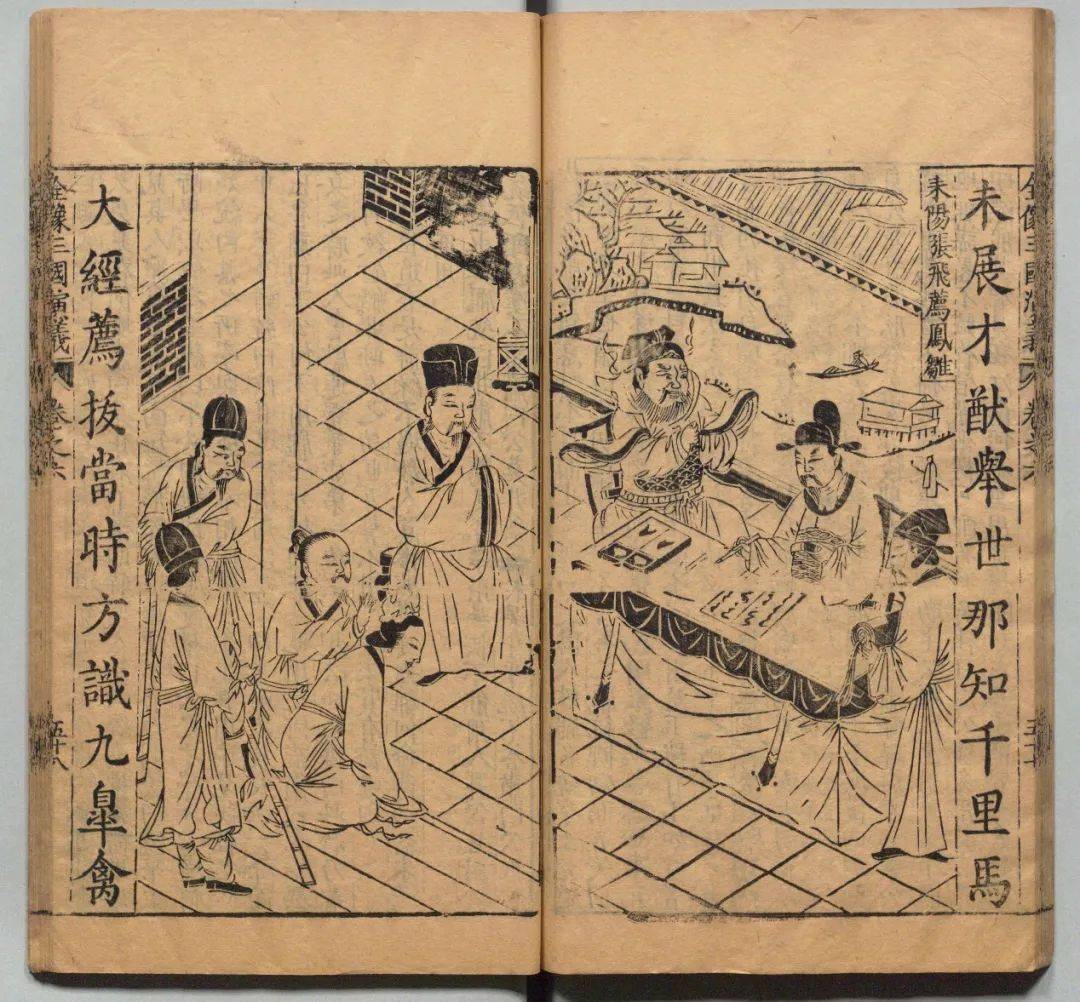 全像三國演義 卷之六
未展才猷舉世那知千里馬
耒陽張飛薦鳳雛
大經薦拔當時方識九臯禽
全像三國演義 卷之六 五十八